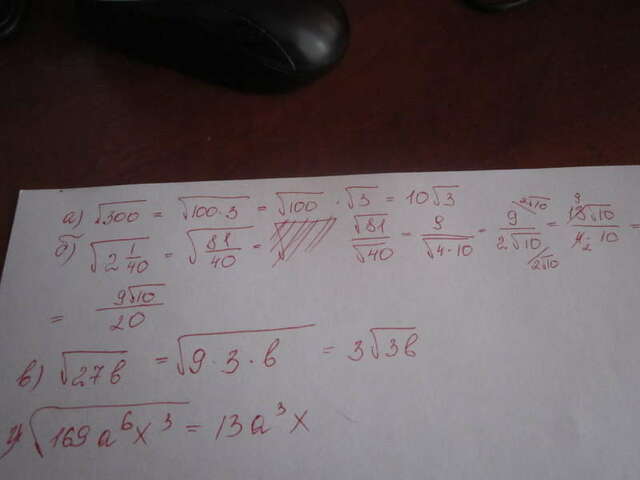 а) √300 = √100·3 = √100 · √3 = 10√3
б) √2 1/40 = √81/40 = √81/√40 = 9/√4·10 = 9/2√10 = 18√10/4·10 =
= 9√10/20
в) √27b = √9·3·b = 3√3b
г) √169a⁶x³ = 13a³x